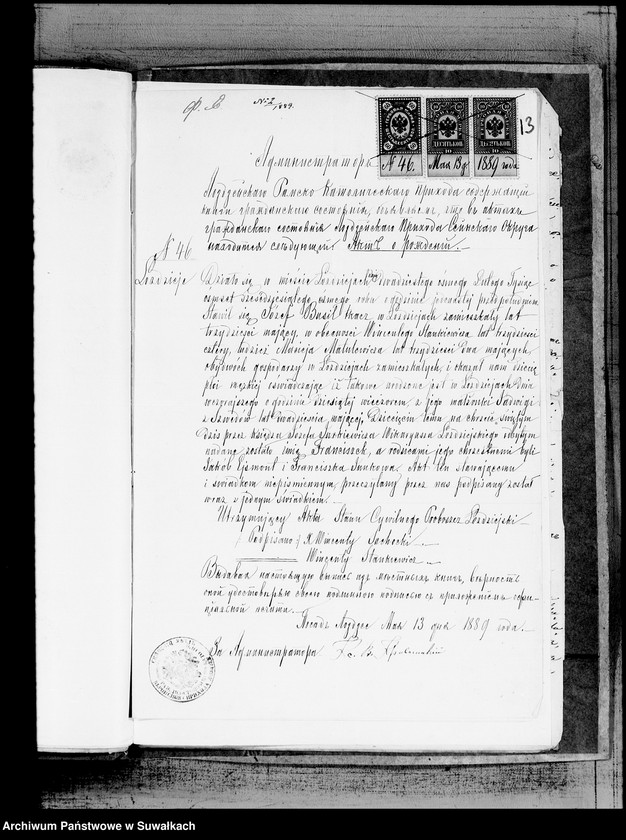 Ф. Л
№ 2/1889.
13
№ 46. Мая 13 д. 1889 года
Администраторъ
Лодзейскаго Римско Католическаго Прихода содержащій
книги гражданскаго состоянія, объявляетъ, что въ актахъ
гражданскаго состоянія Лодзейскаго Прихода Сейнскаго Округа
находится слѣдующій Актъ о рожденіи.
№ 46
Łozdzieje
Działo się w mieście Łozdziejach dwudziestego ósmego Lutego Tysiąc
ośmset sześćdziesiątego ósmego roku o godzinie przed południem
Stawił się Józef Busil tkacz w Łozdziejach zamieszkały lat
trzydzieści mający, w obecności Wincentego Stankiewicza lat trzydzieści
cztery, tudzież Macieja Matulewicza lat trzydzieści dwa mających
obydwóch gospodarzy w Łozdziejach zamieszkałych, i okazał nam dziecię
płci męzkiej oświadczając iż takowe urodzone jest w Łozdziejach dnia
wczorajszego o godzinie dziesiątej wieczorem, z jego małżonki Jadwigi
z Szwedów lat dwadzieścia mającej. Dziecięciu temu na chrzcie świętym
dziś przez Księdza Józefa Wikaryusza Łozdziejskiego odbytym
nadane zostało imię Franciszek, a rodzicami jego chrzestnemi byli
Jakób Ejsmont i Franciszka. Akt ten stawającemu
i świadkom niepiśmiennym przeczytany przez nas podpisany został
wraz z jednym świadkiem.
Utrzymujący Akta Stanu Cywilnego Proboszcz Łozdziejski
Podpisano X. Wincenty
Wincenty Stankiewicz
Выдавая настоящую выпись изъ мѣстныхъ книгъ, вѣрность
оной удостовѣряю своего подлиннаго подписью съ приложеніемъ оффи-
ціальной печати.
Посадъ Лодзее Мая 13 дня 1889 года.
За Администратора
Archiwum Państwowe w Suwałkach